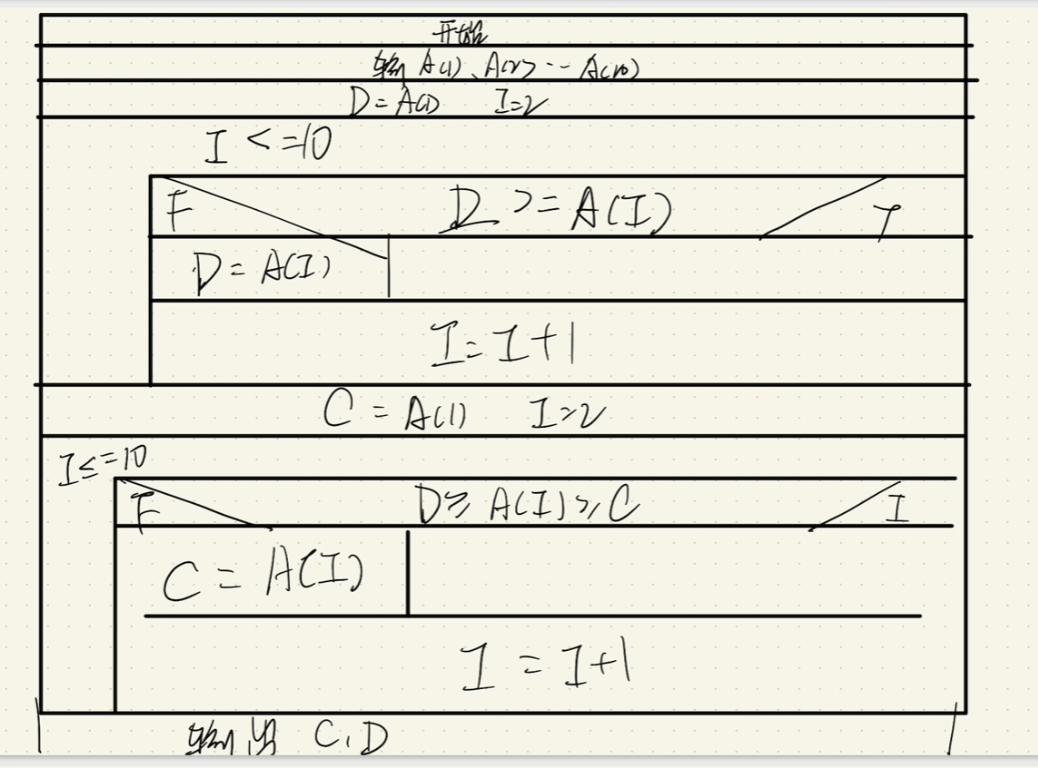 开始
输入 A(1)、A(2) ... A(10)
D = A(1) I=2
I <=10
F D >= A(I) T
D = A(I)
I = I+1
C = A(1) I=2
I<=10
F D≥ A(I)≥C I
C = A(I)
I = I+1
输出 C、D